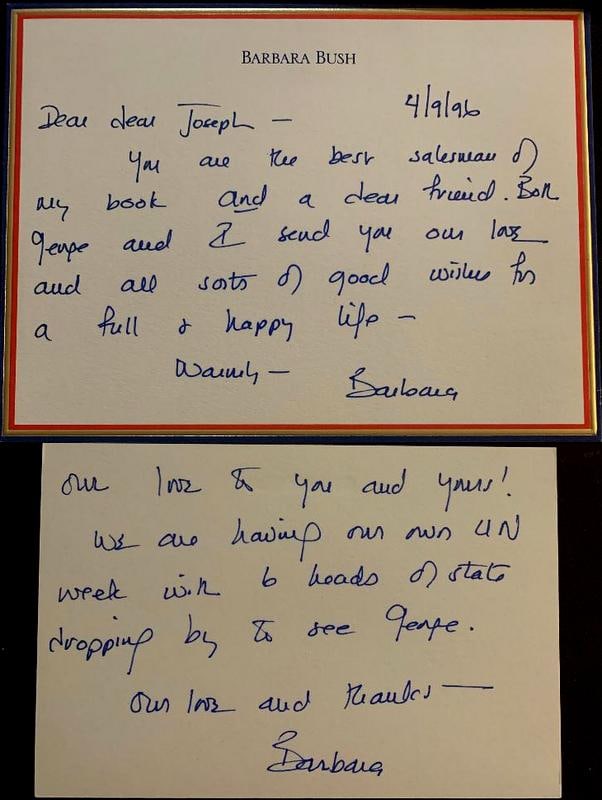 BARBARA BUSH
4/9/96
Dear dear Joseph —
You are the best salesman of
my book and a dear friend. Both
George and I send you our love
and all sorts of good wishes for
a full & happy life —
Warmly —
Barbara
our love to you and yours!
We are having our own UN
week with 6 heads of state
dropping by to see George.
Our love and thanks —
Barbara